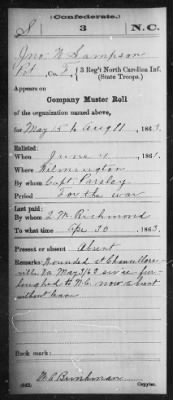 (Confederate.)
S 3 N.C.
Jno. W. Sampson
Pvt, Co. F, 3 Reg't North Carolina Inf.
(State Troops.)
Appears on
Company Muster Roll
of the organization named above,
for May & to Aug 11, 1863.
Enlisted:
When June 4, 1861.
Where Wilmington
By whom Capt. Parsley
Period For the war
Last paid:
By whom Q M Richmond
To what time Apr 30, 1863.
Present or absent Absent
Remarks: Wounded at Chancellors-
ville Va May 3/63 since fur-
loughed to N.C. now absent
without leave
Book mark:
(642) Copyist.